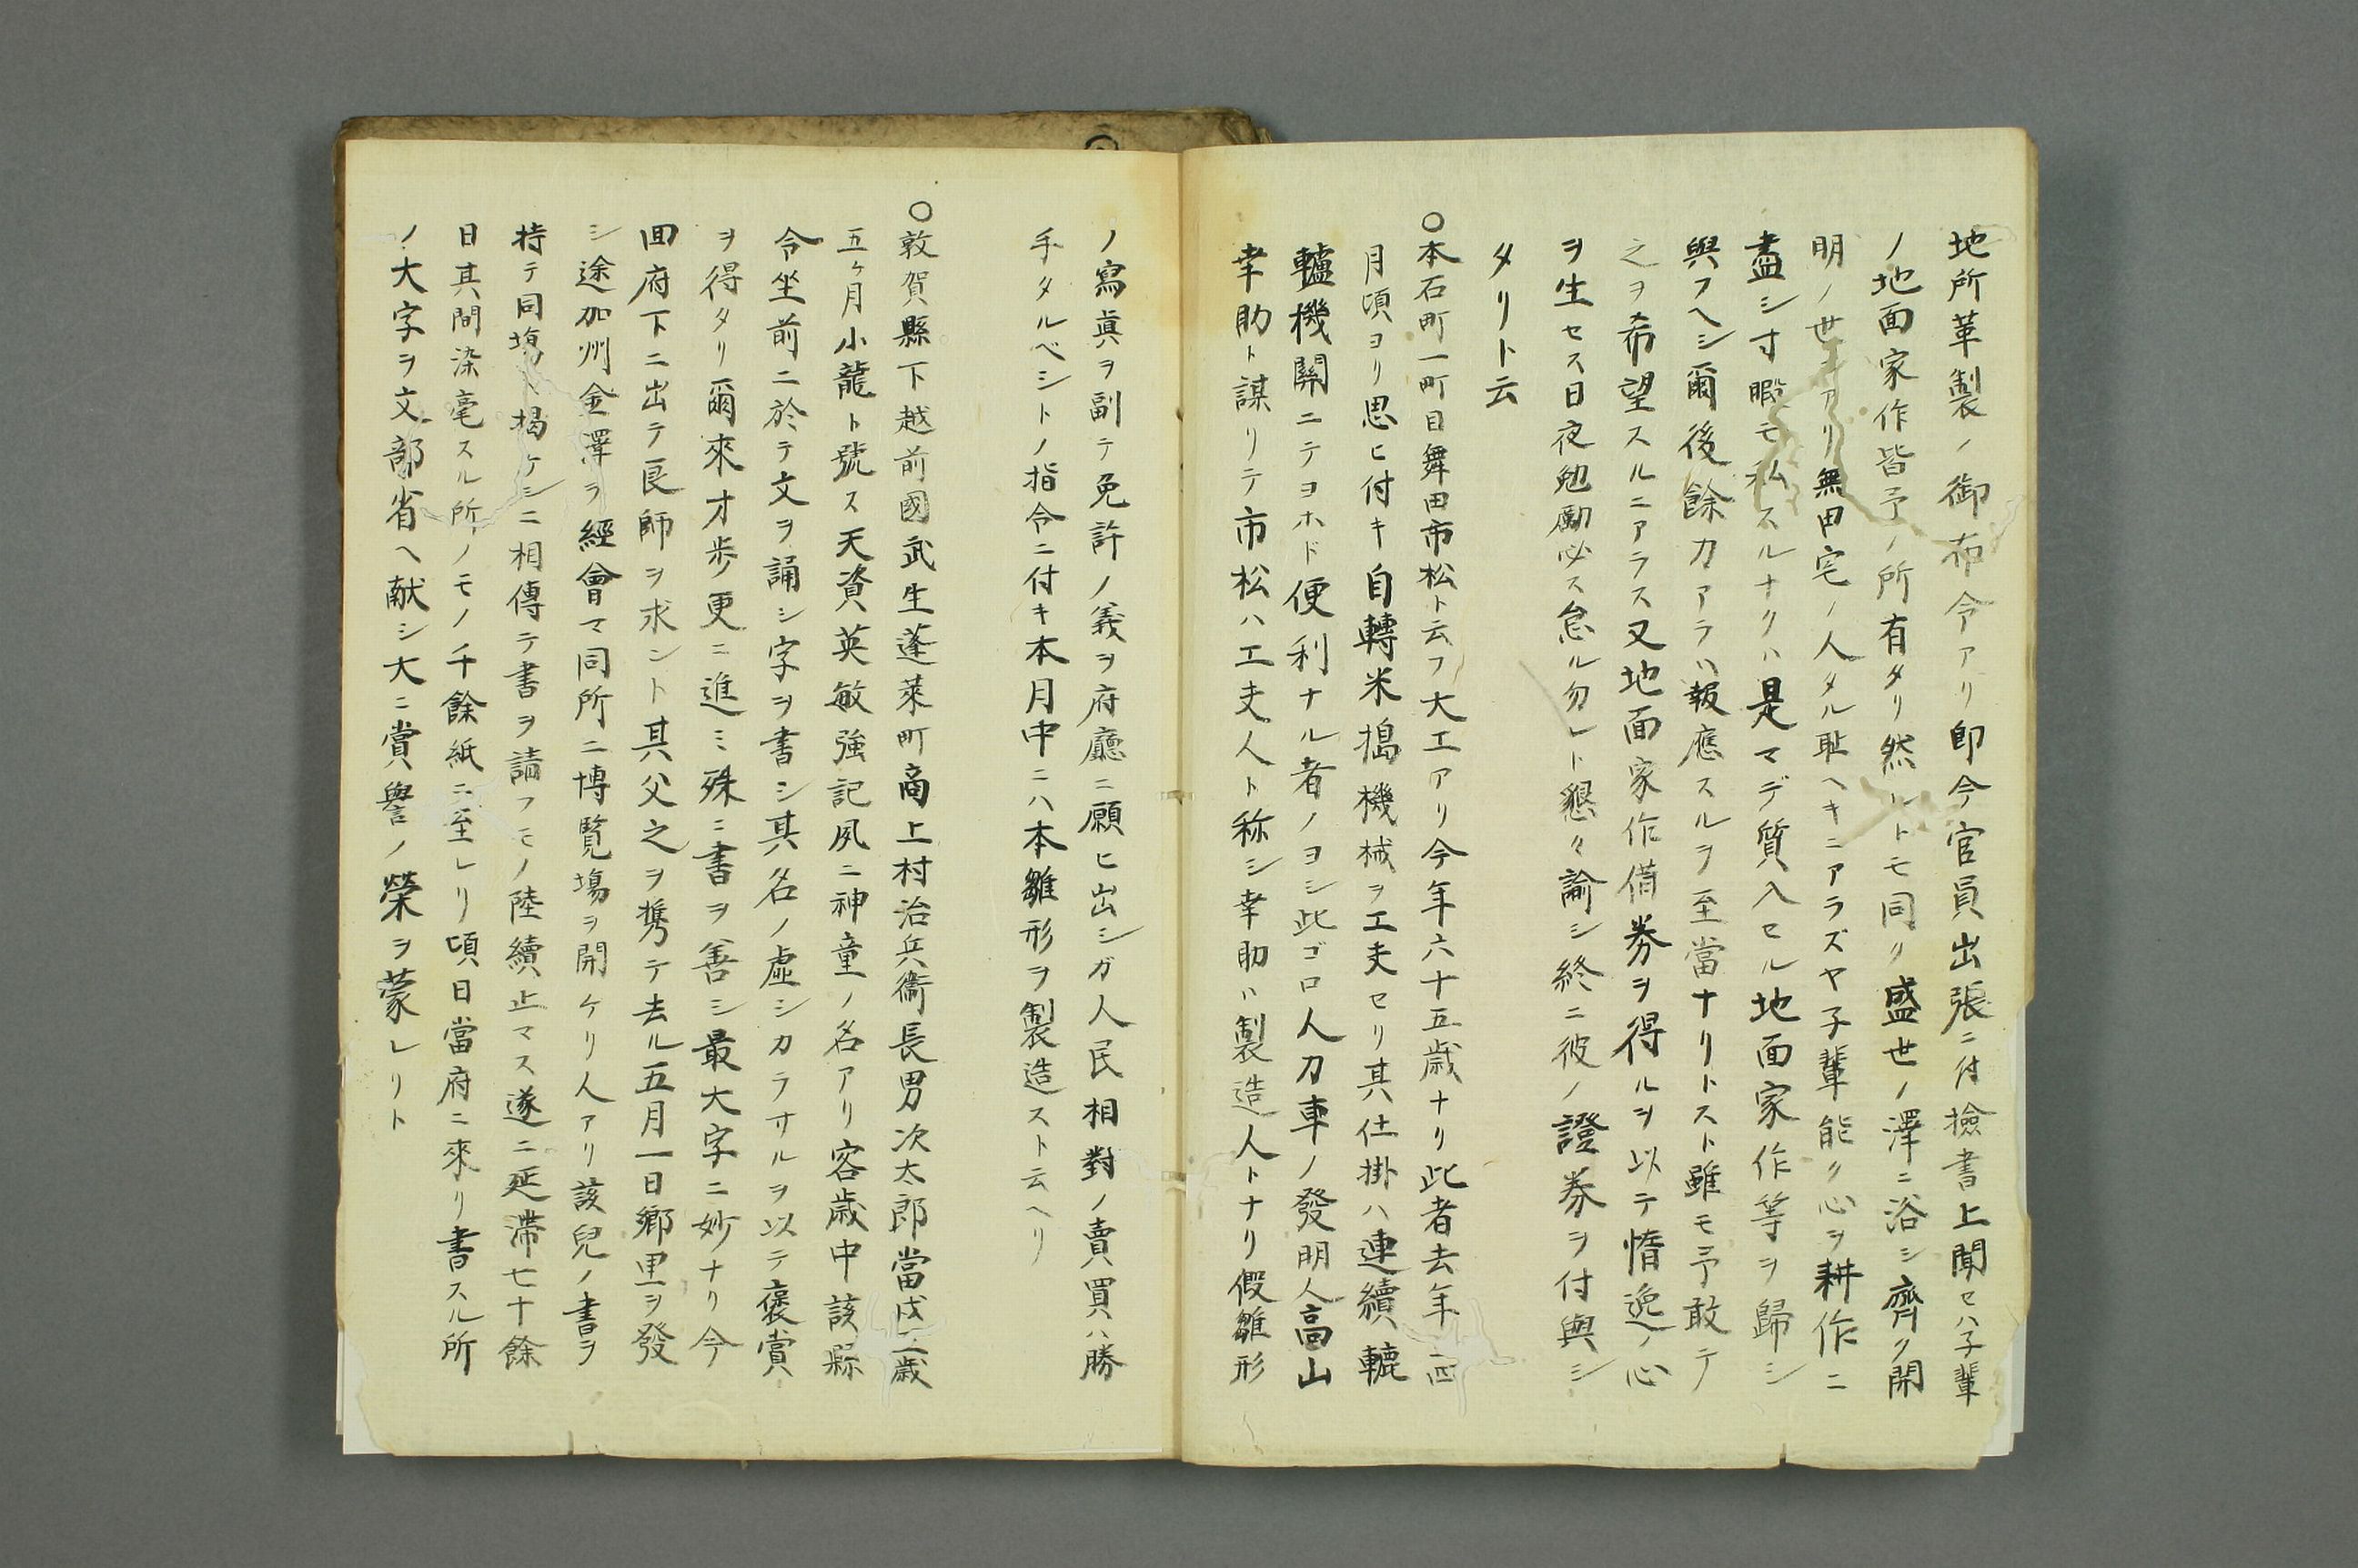 地所革製ノ御布令アリ即今官員出張ニ付撿書上聞セハ子輩
ノ地面家作皆予ノ所有タリ然レトモ同ク盛世ノ澤ニ浴シ齊ク開
明ノ世ニアリ無田宅ノ人タル耻ヘキニアラズヤ子輩能ク心ヲ耕作ニ
盡シ寸暇モ私スルナクハ是マデ質入セル地面家作等ヲ歸シ
與フヘシ爾後餘力アラハ報應スルヲ至當ナリトスト雖モ予敢テ
之ヲ希望スルニアラス又地面家作借券ヲ得ルヲ以テ惰逸ノ心
ヲ生セス日夜勉勵必ス怠ル勿レト懇々諭シ終ニ彼ノ證券ヲ付與シ
タリト云
〇本石町一町目舞田市松ト云フ大工アリ今年六十五歳ナリ此者去年四
月頃ヨリ思ヒ付キ自轉米搗機械ヲ工夫セリ其仕掛ハ連續轆
轤機關ニテヨホド便利ナル者ノヨシ此ゴロ人力車ノ發明人高山
幸助ト謀リテ市松ハ工夫人ト称シ幸助ハ製造人トナリ假雛形
ノ寫眞ヲ副テ免許ノ義ヲ府廳ニ願ヒ出シガ人民相對ノ賣買ハ勝
手タルベシトノ指令ニ付キ本月中ニハ本雛形ヲ製造スト云ヘリ
〇敦賀縣下越前國武生蓬萊町商上村治兵衞長男次太郎當戌二歳
五ヶ月小龍ト號ス天資英敏強記夙ニ神童ノ名アリ客歳中該縣
令坐前ニ於テ文ヲ誦シ字ヲ書シ其名ノ虚シカラサルヲ以テ褒賞
ヲ得タリ爾來才歩更ニ進ミ殊ニ書ヲ善シ最大字ニ妙ナリ今
回府下ニ出テ良師ヲ求ント其父之ヲ携テ去ル五月一日郷里ヲ發
シ途加州金澤ヲ經會マ同所ニ博覧場ヲ開ケリ人アリ該兒ノ書ヲ
持テ同場ヘ揭ケシニ相傳テ書ヲ請フモノ陸續止マス遂ニ延滯七十餘
日其間染毫スル所ノモノ千餘紙ニ至レリ頃日當府ニ來リ書スル所
ノ大字ヲ文部省ヘ献シ大ニ賞譽ノ榮ヲ蒙レリト